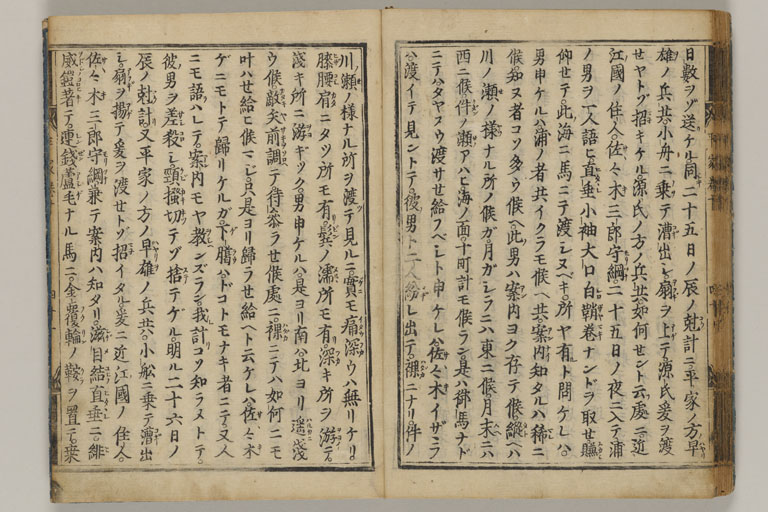 日数ヲゾ送ケル同二十五日ノ辰ノ尅計ニ平家ノ方早
雄ノ兵共小舟ニ乗テ漕出シ扇ヲ上テ源氏爰ヲ渡
セヤトゾ招キケル源氏ノ方ノ兵共如何セント云處ニ近
江國ノ住人佐々木三郎守綱二十五日ノ夜ニ入テ浦
ノ男ヲ一人語ヒ直垂小袖大口白鞘巻ナンドラ取セ賺
仰セテ此海ニ馬ニテ渡シヌベキ所ヤ有ト問ケレハ
男申ケルハ浦ノ者共イクラモ候ヘ共案内知タルハ稀ニ
候知ヌ者コソ多ウ候ヘ此男ハ案内ヨク存テ候縦ヘハ
川ノ瀬ノ様ナル所ノ候ガ月ガシラニハ東ニ候月末ニハ
西ニ候件ノ瀬アハヒ海ノ面十町計モ候ラン是ハ御馬ナド
ニテハタヤスウ渡サセ給フベシト申ケレハ佐々木イザヽラ
ハ渡イテ見ントテ彼男ト二人紛レ出テ裸ニナリ件ノ
川ノ瀬ノ様ナル所ヲ渡テ見ルニ實モ痛深ウハ無リケリ
膝腰肩ニタツ所モ有鬢ノ濡所モ有深キ所ヲ游テ
淺キ所ニ游ギツク男申ケルハ是ヨリ南ハ北ヨリ遥淺
ウ候敵矢前調テ待参ラセ候處ニ裸ニテハ如何ニモ
叶ハセ給ヒ候マシ只是ヨリ歸ラセ給ヘト云ケレハ佐々木
ゲニモトテ歸リケルガ下臈ハドコトモナキ者ニテ又人
ニモ語ハレテ案内モヤ教ンズラン我計コソ知ラメトテ
彼男ヲ差殺シ頸掻切テゾ捨テケル明ル二十六日ノ
辰ノ尅計又平家ノ方ノ早雄ノ兵共小舩ニ乗テ漕出
シ扇ヲ揚テ爰ヲ渡セトゾ招イタル爰ニ近江國ノ住人
佐々木三郎守綱兼テ案内ハ知タリ滋目結直垂ニ緋
威鎧著テ連錢蘆毛ナル馬ニ金覆輪ノ鞍ヲ置テ乗